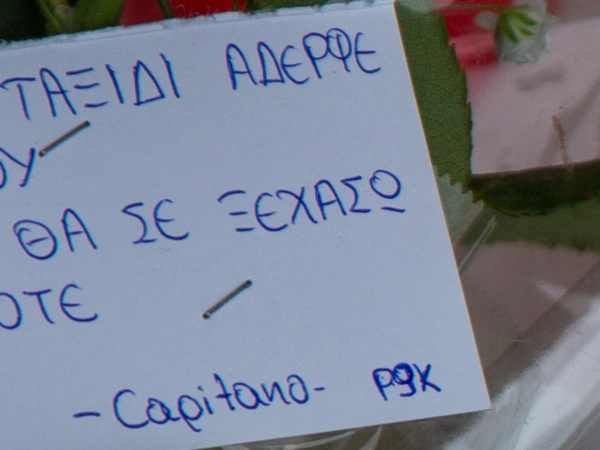 ΤΑΞΙΔΙ ΑΔΕΡΦΕ
ΟΥ
ΘΑ ΣΕ ΞΕΧΑΣΩ
ΟΤΕ
- Capitano- P9K